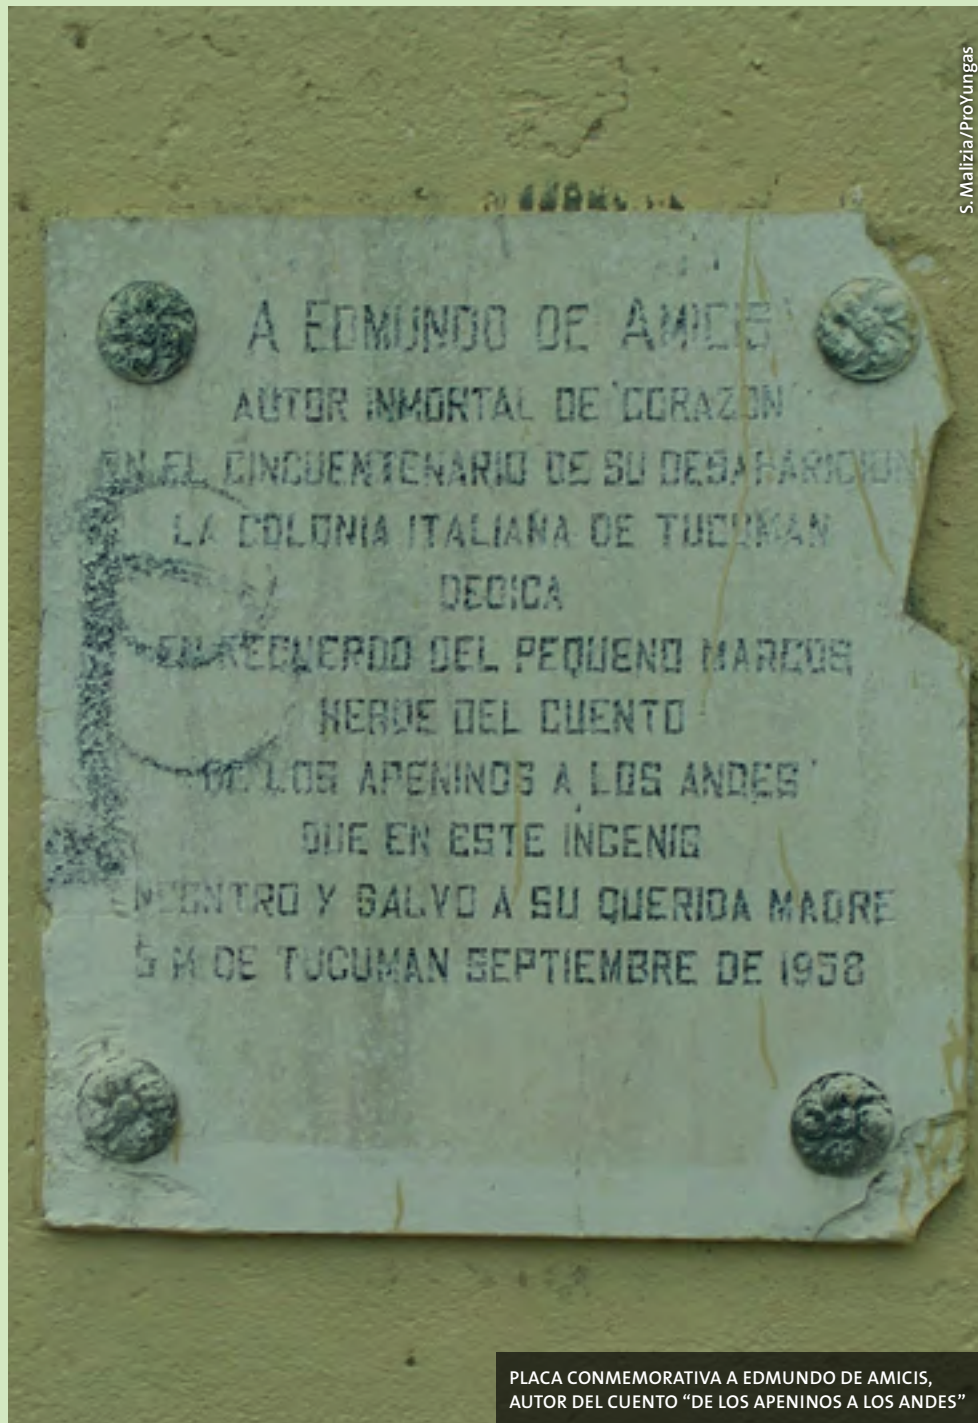 S. Malizia/ProYungas
A EDMUNDO DE AMICIS
AUTOR INMORTAL DE 'CORAZON'
EN EL CINCUENTENARIO DE SU DESAPARICION
LA COLONIA ITALIANA DE TUCUMAN
DEDICA
EN RECUERDO DEL PEQUENO MARCOS
HEROE DEL CUENTO
'DE LOS APENINOS A LOS ANDES'
QUE EN ESTE INGENIO
NCONTRO Y SALVO A SU QUERIDA MADRE
S M DE TUCUMAN SEPTIEMBRE DE 1958
PLACA CONMEMORATIVA A EDMUNDO DE AMICIS,
AUTOR DEL CUENTO “DE LOS APENINOS A LOS ANDES”